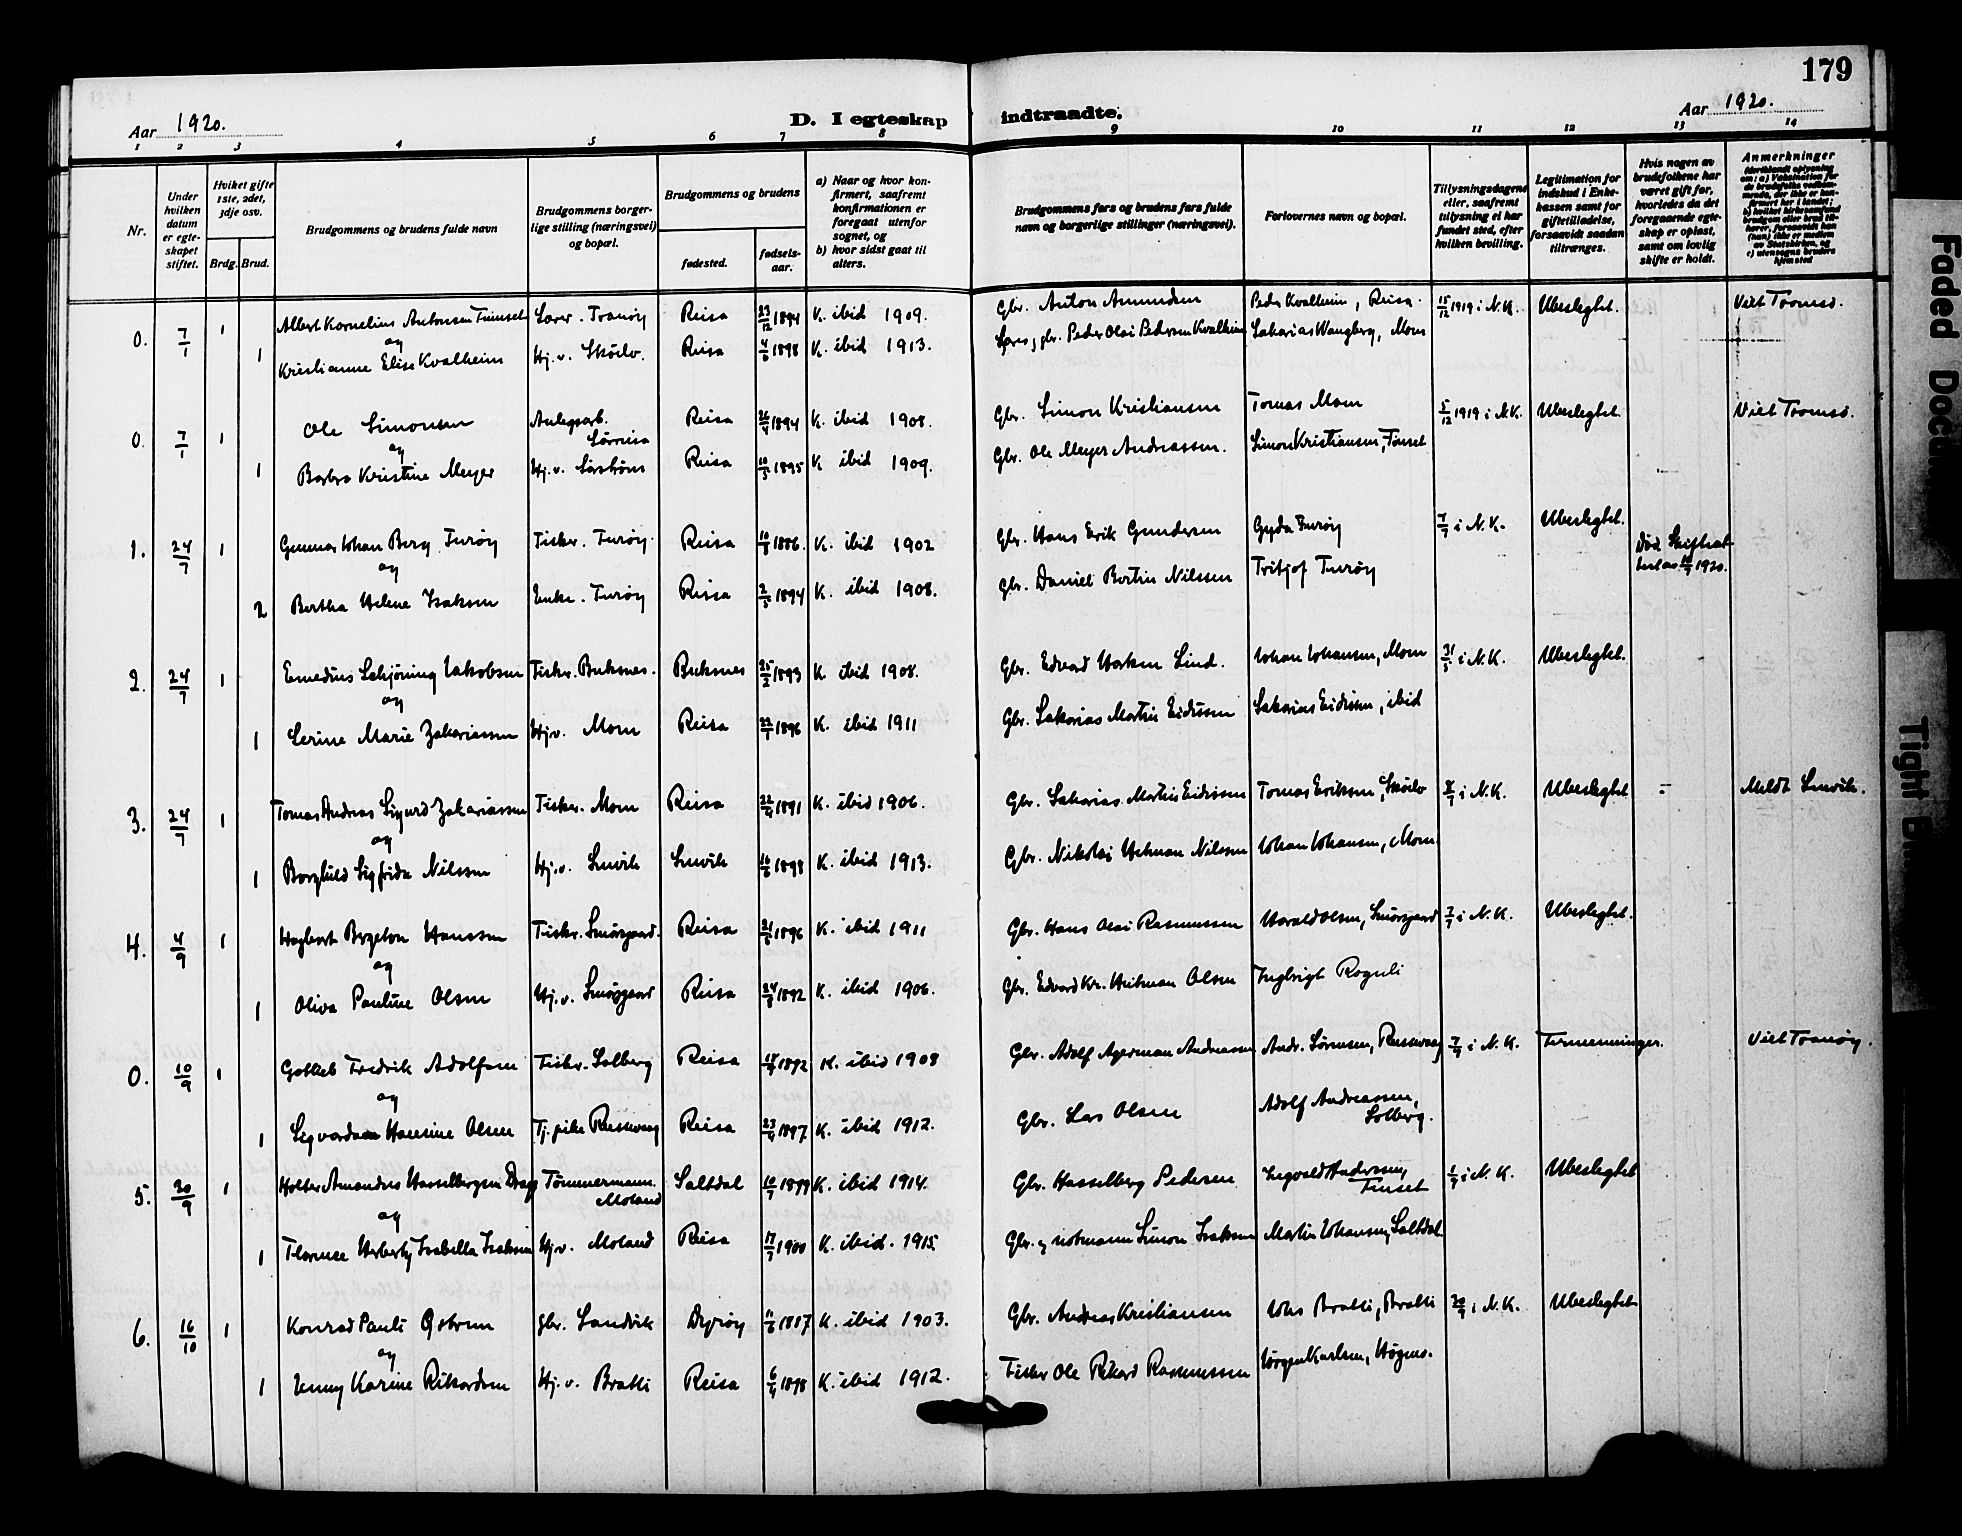 179
Aar 1920.
D. I egteskap indtraadte.
Aar 1920.
1 2 3 4 5 6 7 8 9 10 11 12 13 14
Nr.
Under hvilken datum er egteskapet stiftet.
Hvilket gifte 1ste, 2det, 3dje osv.
Brdg. Brud.
Brudgommens og brudens fulde navn
Brudgommens borgerlige stilling (næringsvei) og bopæl.
Brudgommens og brudens
fødested.
fødselsaar.
a) Naar og hvor konfirmert, saafremt konfirmationen er foregaat utenfor sognet, og
b) hvor sidst gaat til alters.
Brudgommens fars og brudens fars fulde navn og borgerlige stillinger (næringsvei).
Forlovernes navn og bopæl.
Tillysningsdagene eller, saafremt tillysning ei har fundet sted, efter hvilken bevilling.
Legitimation for indskud i Enkekassen samt for giftetilladelse, forsaavidt saadan tiltrænges.
Hvis nogen av brudefolkene har været gift før, hvorledes da det foregaaende egteskap er opløst, samt om lovlig skifte er holdt.
Anmerkninger
0. 7/1 1 Albert Kornelius Antonsen Tunset Lærer. Tranøy Reisa 23/12 1894 K. ibid 1909. Gbr. Anton Amundsen Peder Kvalheim, Reisa. 15/12 1919 i N.K. Ubeslegtet. Viet Tromsø.
og
1 Kristianne Elise Kvalheim Hj. v. Sköelv. Reisa 1898 K. ibid 1913. gbr. Peder Olai Pedersen Kvalheim Sakarias Wangberg, Moen
0. 7/1 1 Ole Simonsen Anlegsarb. Sørreisa Reisa 26/4 1894 K. ibid 1908. Gbr. Simon Kristiansen Tomas Moen 5/12 1919 i N.K. Ubeslegtet. Viet Tromsø.
og
1 Barbro Kristine Meyer Hj. v. Sørstrøm Reisa 10/5 1895 K ibid 1909. Gbr. Ole Meyer Andreassen. Simon Kristiansen, Tunset
1. 24/7 1 Gunnar Johan Berg Furøy Fisker. Furøy. Reisa 1886. K. ibid 1902 Gbr. Hans Erik Gundersen Gyda Furøy 7/7 i N.K. Ubeslegtet. Død. Skifteattest av 1920.
og
2 Bertha Helene Isaksen Enke. Furøy Reisa 2/5 1894 K. ibid 1908. Gbr. Daniel Bertin Nilssen Tritjof Furøy
2. 24/7 1 Emedius Schjöning Jakobsen Fisker. Buksnes. Buksnes 25/2 1893 K ibid 1908. Gbr. Edvard Hartsen Lind. Johan Johansen, Moen 31/5 i N.K. Ubeslegtet.
og
1 Serine Marie Zakariassen Hj.v. Moen Reisa 22/7 1896 K. ibid 1911 Gbr. Sakarias Martin Eidissen Sakarias Eidissen, ibid
3. 24/7 1 Tomas Andreas Sigurd Zakariassen Fisker. Moen Reisa 22/4 1891 K. ibid 1906. Gbr. Sakarias Martin Eidissen Tomas Eriksen, Sköelv i N.K. Ubeslegtet Meldt Lenvik.
og
1 Borghild Sigfrida Nilssen Hj.v. Lenvik Lenvik 16/6 1898 K. ibid 1913. Gbr. Nikolai Helman Nilssen Johan Johansen, Moen
4. 4/9 1 Hagbart Bergeton Hanssen Fisker. Smørsgaard. Reisa 1896 K. ibid 1911 Gbr. Hans Olai Rasmussen Harald Olsen, Smørsgaard 7/7 i N.K. Ubeslegtet.
og
1 Oliva Pauline Olsen Hj. v. Smørsgaard Reisa 1892 K. ibid 1906. Gbr. Edvard Kr. Heitman Olsen Ingbrigt Rognli
0. 10/9 1 Gottlieb Fredrik Adolfsen Fisker. Solberg Reisa 1892 K. ibid 1908 Gbr. Adolf Agerman Andreassen Andr. Sørensen, Russevaag 7/7 i N.K. Tirmenninger. Viet Tranøy.
og
1 Sigvardann Hansine Olsen Tj. pike Russevaag Reisa 23/4 1897 K. ibid 1912. Gbr. Lars Olsen Adolf Andreassen, Solberg.
5. 30/9 1 Holter Amandus Hasselbergsen Drage Tömmermann. Moland Saltdal 10/7 1899 K. ibid 1914. Gbr. Hasselberg Pedersen Segvald Andersen, Tunset i N.K. Ubeslegtet
og
1 Florence Herberty Isabella Isaksen Hj.v. Moland Reisa 17/7 1900 K. ibid. 1915 Gbr. og notmann Simon Isaksen Martin Johansen, Saltdal
6. 16/10 1 Konrad Pauli Östrem gbr. Sandvik Dyrøy 1887 K. ibid 1903. Gbr. Andreas Kristiansen Johs Bratli, Bratli 20/9 i N.K. Ubeslegtet
og
1 Jenny Karine Rikardsen Hj. v. Bratli Reisa 6/4 1898 K. ibid 1912. Fisker Ole Rikard Rasmussen Jörgen Karlsen, Högmo.
Faded Docu
Tight B